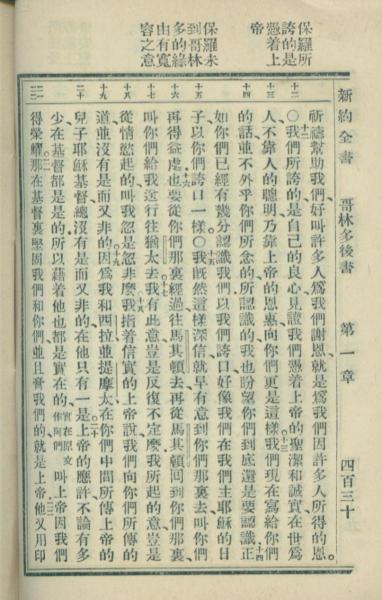 新約全書　哥林多後書　第一章　四百三十
保羅所
誇的是
憑着上
帝
保羅未
到哥林
多的緣
由有寬
容之意
祈禱幫助我們、好叫許多人爲我們謝恩、就是爲我們因許多人所得的恩。
十二
〇我們所誇的、是自己的良心見證我們憑着上帝的聖潔和誠實在世爲
人、不靠人的聰明、乃靠上帝的恩惠、向你們更是這樣、我們現在寫給你們
的話、並不外乎你們所念的所認識的、我也盼望你們到底還是要認識、正
如你們已經有幾分認識我們、以我們誇口、好像我們在我們主耶穌的日
十五
子、以你們誇口一樣〇我旣然這樣深信、就早有意到你們那裏去、叫你們
十六
再得益處、也要從你們那裏經過往馬其頓去、再從馬其頓回到你們那裏、
十七
叫你們給我送行往猶太去、我有此意、豈是反復不定麽、我所起的意豈是
十八
從情慾起的、叫我忽是忽非麽、我指着信實的上帝說、我們向你們所傳的
十九
道、並沒有是而又非的、因爲我和西拉並提摩太、在你們中間所傳上帝的
二十
兒子耶穌基督、總沒有是而又非的、在他只有一是、上帝的應許不論有多
少、在基督都是是的、所以藉着他也都是實在的、實在原文作阿們叫上帝因我們
得榮耀、那在基督裏堅固我們和你們、並且膏我們的、就是上帝、他又用印